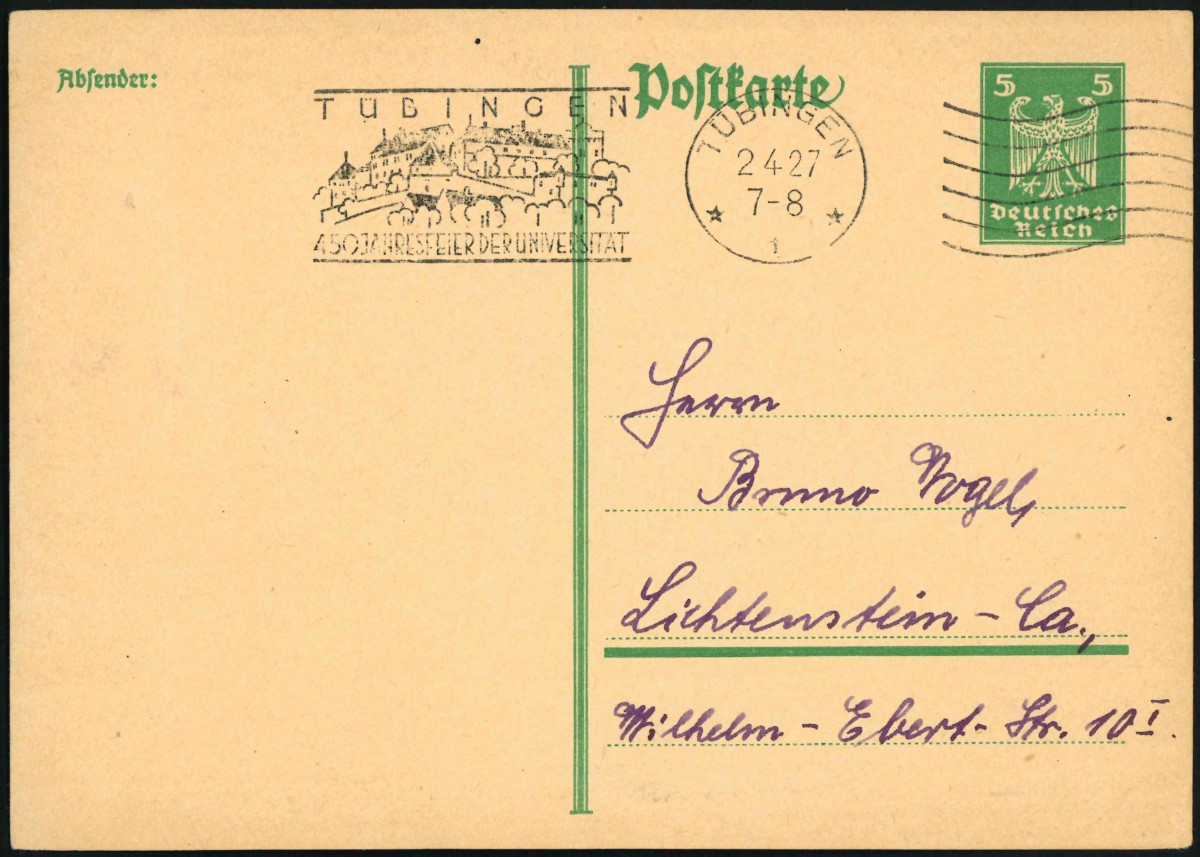 Absender:
Postkarte
TÜBINGEN
450 JAHRESFEIER DER UNIVERSITÄT
TÜBINGEN
2 4 27
7-8
1
5 5
Deutsches
Reich
Herrn
Bruno Vogel,
Lichtenstein - Ca.,
Wilhelm - Ebert - Str. 10 I.